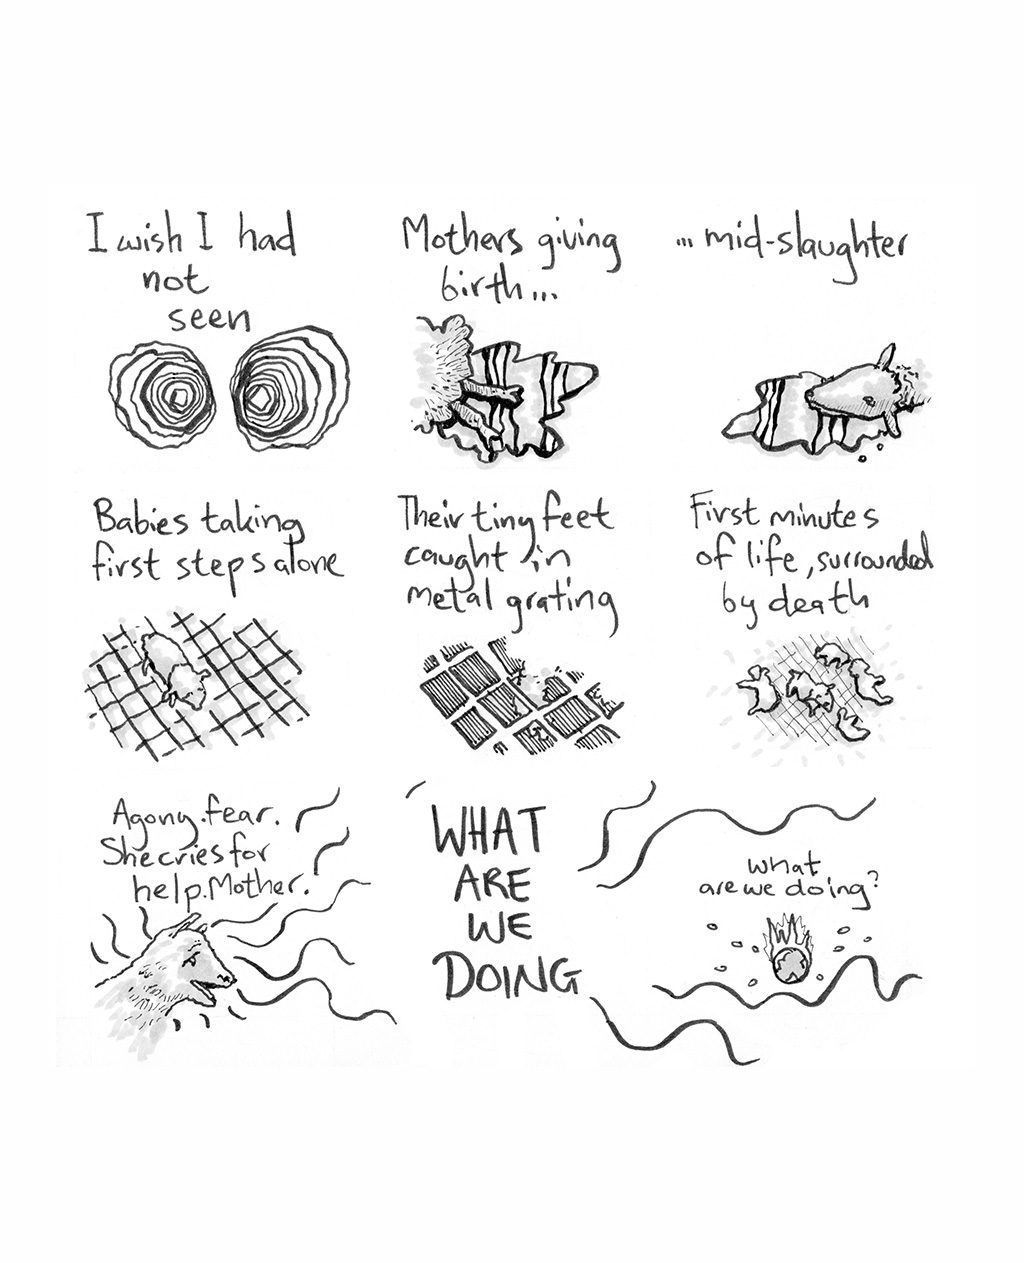 I wish I had
not
seen
Mothers giving
birth...
...mid-slaughter
Babies taking
first steps alone
Their tiny feet
caught in
metal grating
First minutes
of life, surrounded
by death
Agony. fear.
She cries for
help. Mother.
WHAT
ARE
WE
DOING
what
are we doing?